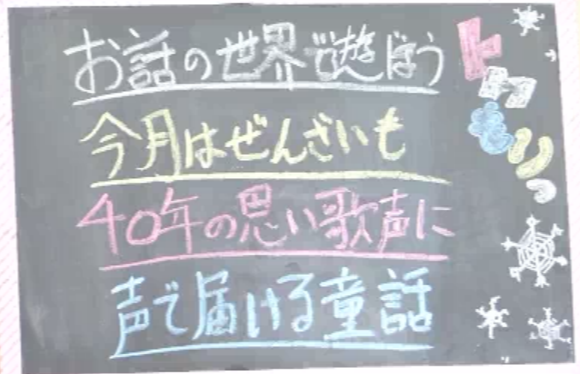 お話の世界で遊ぼう
今月はぜんざいも
40年の思い歌声に
声で届ける童話